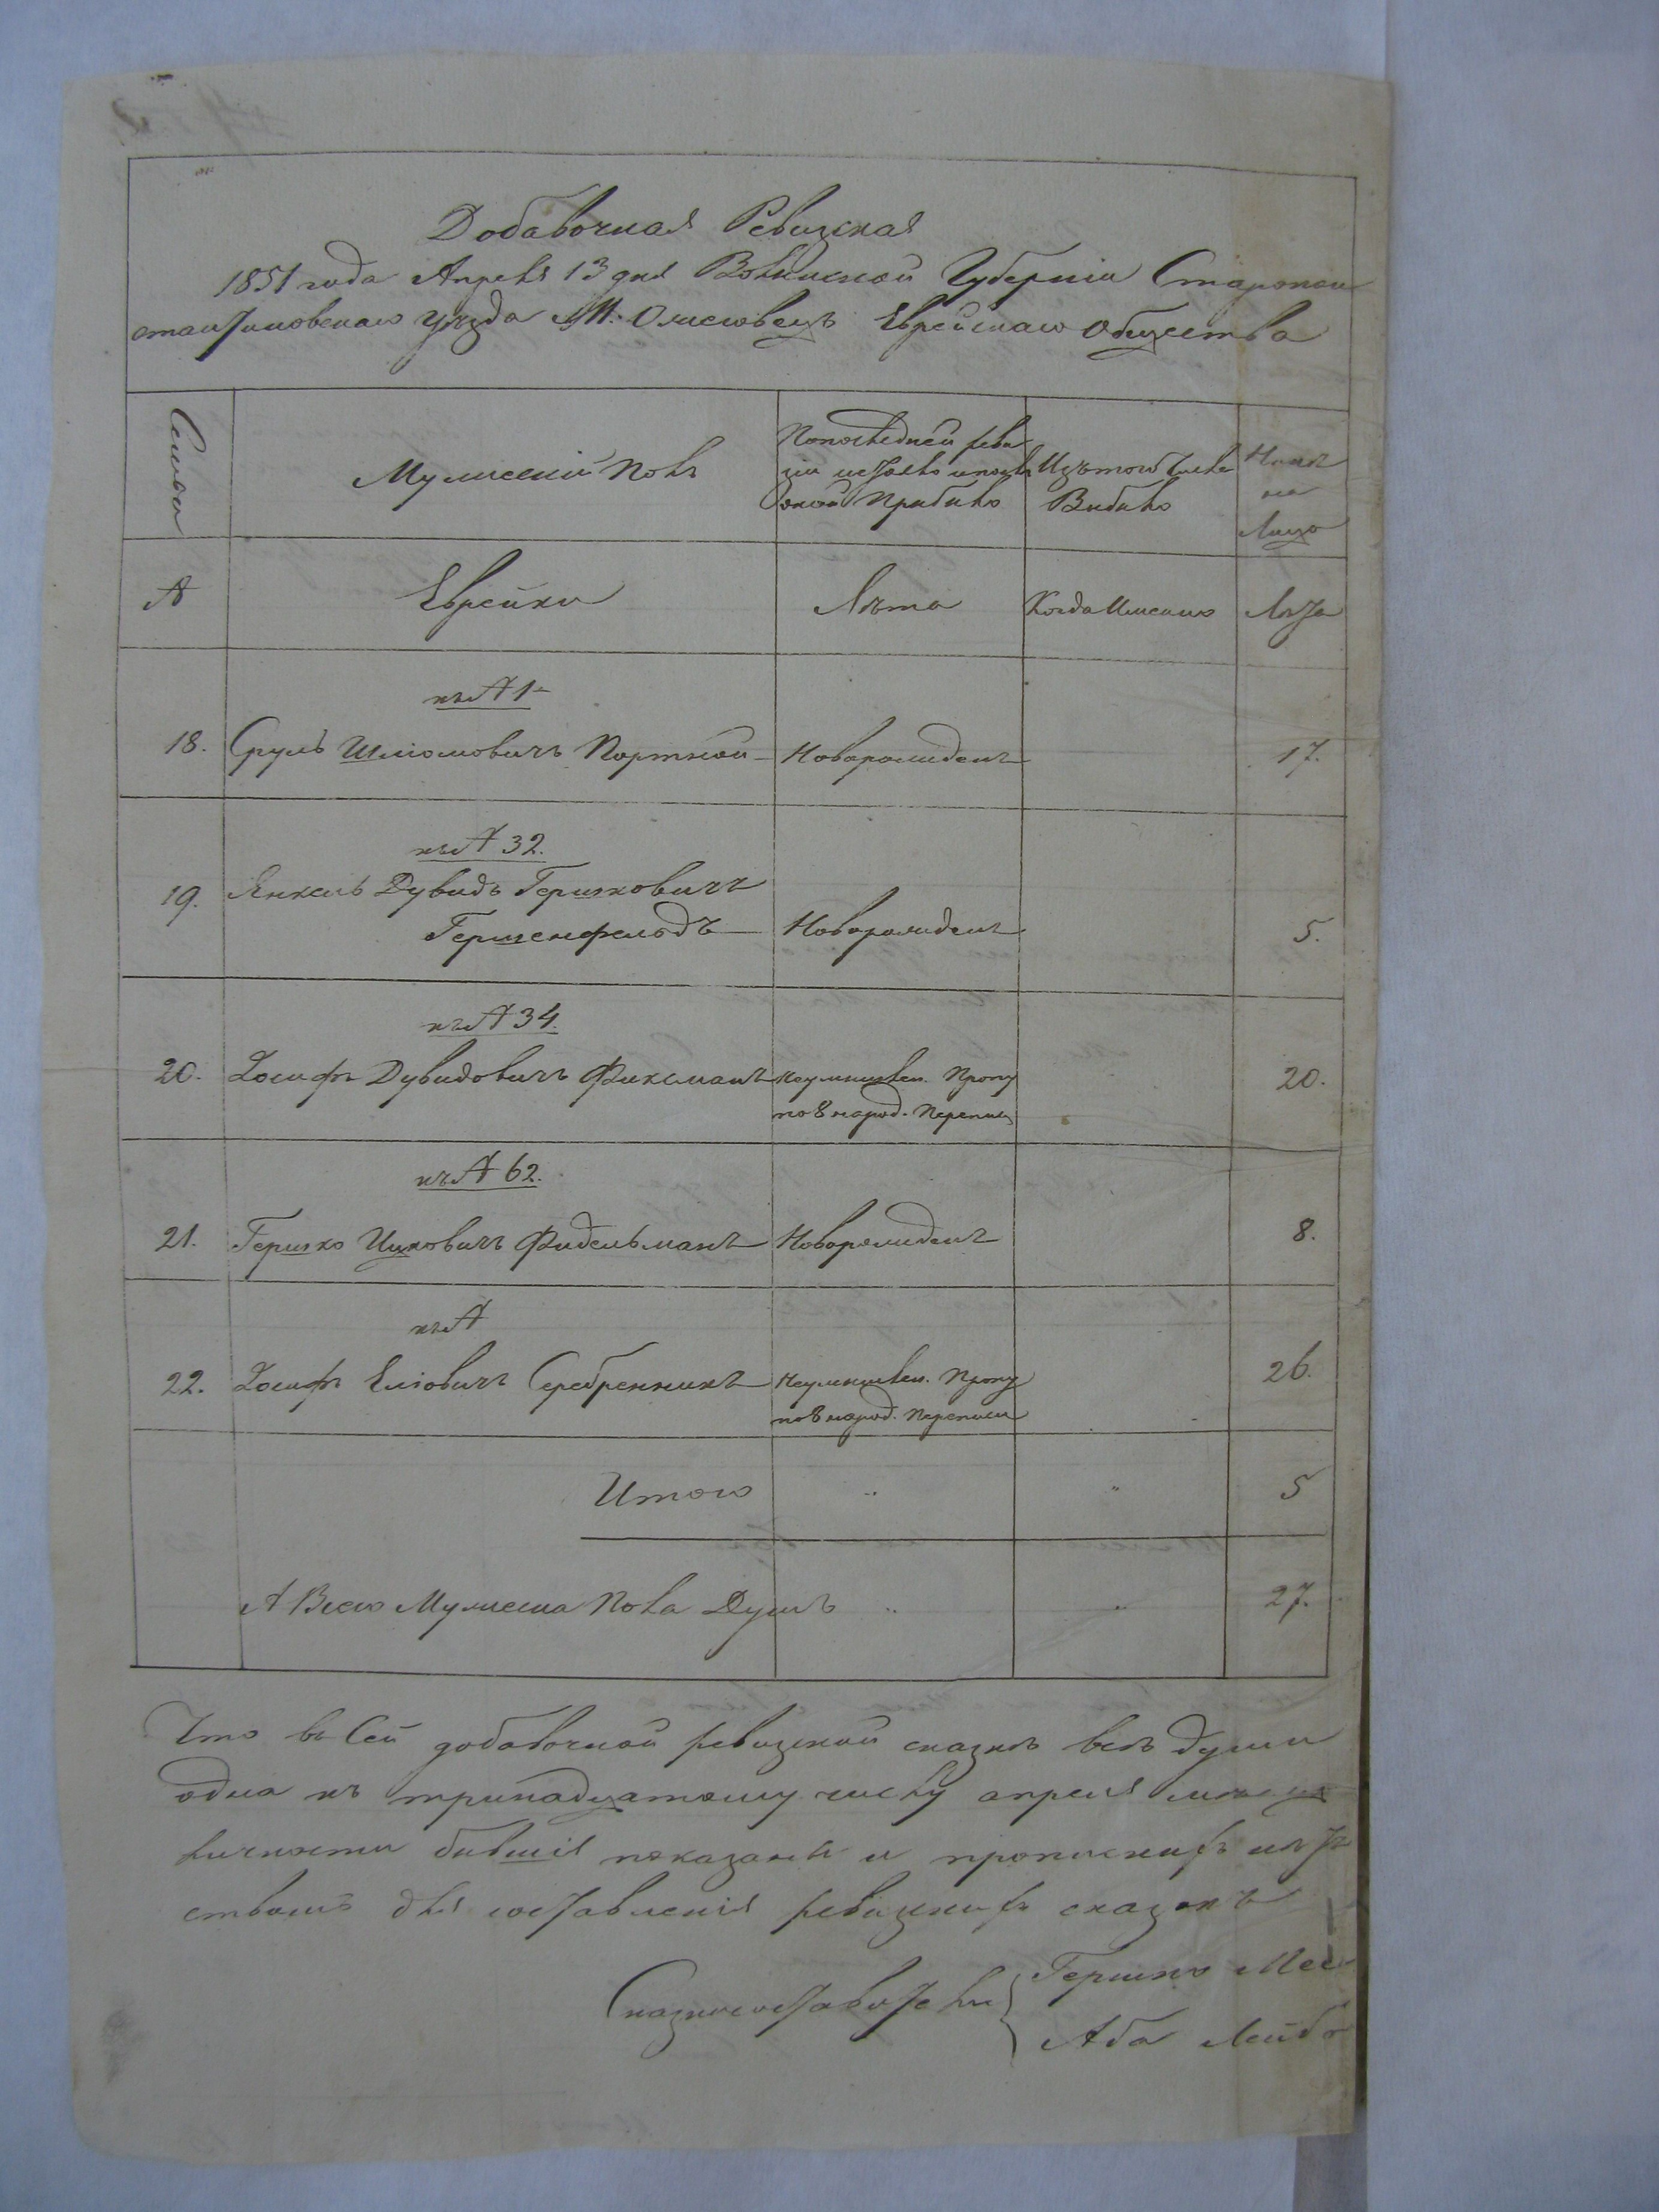 Добавочная Ревизская
1851 года Апреля 13 дня Волынской Губерніи Старокон
стантиновскаго уѣзда М. Еврейскаго Общества
Семьи
Мужескій Полъ
По последней реви
зіи состояло и послѣ
оной Прибыло
Изъ того числа
Выбыло
Нынѣ
на
Лицо
№
Евреики
Лѣта
Когда Именно
Лѣта
къ № 1
18. Сруль Шліомовичъ Портной Новорожденъ 17.
къ № 32.
19. Янкель Дувидъ Гершковичъ
Гершенфельдъ Новорожденъ 5.
къ № 34.
20. Іосифъ Дувидовичъ Фиксманъ Неумышлен. Пропу 20.
по 8 народ. Переписи
къ № 62.
21. Гершко Ицковичъ Фидельманъ Новорожденъ 8.
къ №
22. Іосифъ Еліовичъ Серебренникъ Неумышлен. Пропу 26.
по 8 народ. Переписи
Итого " " 5
А Всего Мужеска Пола Душъ " " 27.
Что въ Сей добавочной ревизской сказкѣ всѣ души
одна къ тринадцатому числу апреля
личности бывшія показаны и
ствомъ для составленія ревизкихъ сказокъ
Сказкосоставители Гершко
Аба Лейбо